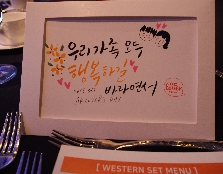 우리가족 모두
행복하길
바라면서
[ WESTERN SET MENU ]